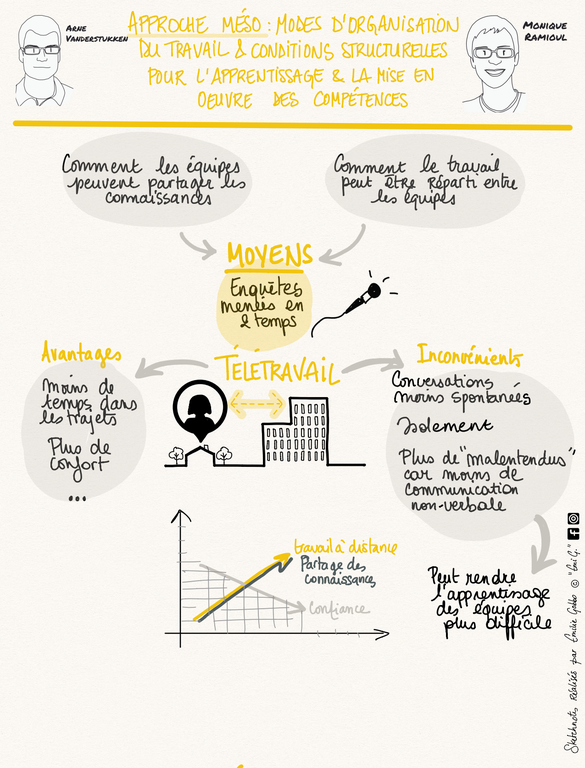 Arne
Vanderstukken
Approche méso : modes d'organisation
du travail & conditions structurelles
pour l'apprentissage & la mise en
oeuvre des compétences
Monique
Ramioul
Comment les équipes
peuvent partager les
connaissances
Comment le travail
peut être réparti entre
les équipes
MOYENS
Enquêtes
menées en
2 temps
TÉLÉTRAVAIL
Avantages
moins de
temps dans
les trajets
Plus de
confort
...
Inconvénients
Conversations
moins spontanées
Isolement
Plus de "malentendus"
car moins de
communication
non-verbale
Peut rendre
l'apprentissage
des équipes
plus difficile
travail à distance
Partage des
connaissances
Confiance
Sketchnote réalisée par Emilie Gobbo © "Emi G."